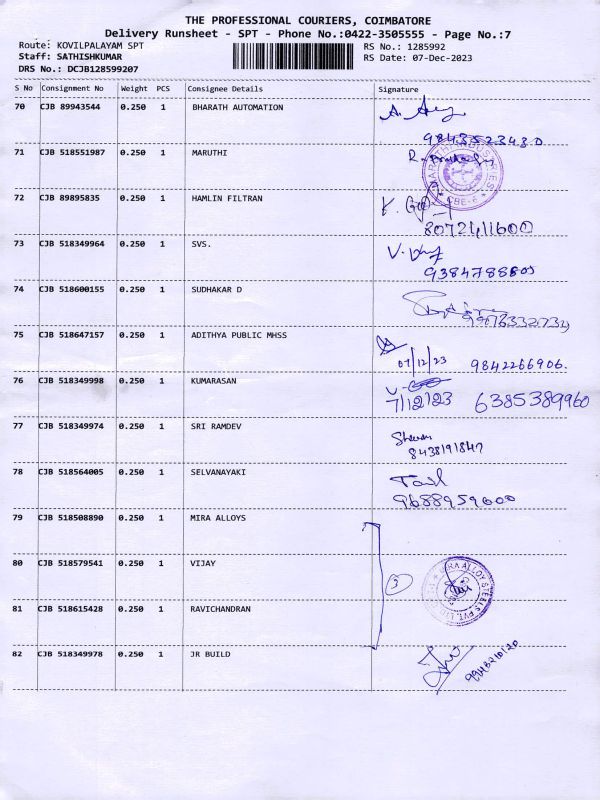 THE PROFESSIONAL COURIERS, COIMBATORE
Delivery Runsheet - SPT - Phone No.:0422-3505555 - Page No.:7
Route: KOVILPALAYAM SPT
Staff: SATHISHKUMAR
DRS No.: DCJB128599207
RS No.: 1285992
RS Date: 07-Dec-2023
S No Consignment No Weight PCS Consignee Details Signature
70 CJB 89943544 0.250 1 BHARATH AUTOMATION
9843523430
71 CJB 518551987 0.250 1 MARUTHI
72 CJB 89895835 0.250 1 HAMLIN FILTRAN
8072411600
73 CJB 518349964 0.250 1 SVS.
9384788605
74 CJB 518600155 0.250 1 SUDHAKAR D
75 CJB 518647157 0.250 1 ADITHYA PUBLIC MHSS
07/12/23 9842266906.
76 CJB 518349998 0.250 1 KUMARASAN
7/12/23 6385389960
77 CJB 518349974 0.250 1 SRI RAMDEV
8438191847
78 CJB 518564005 0.250 1 SELVANAYAKI
9688959600
79 CJB 518508890 0.250 1 MIRA ALLOYS
80 CJB 518579541 0.250 1 VIJAY
3
81 CJB 518615428 0.250 1 RAVICHANDRAN
82 CJB 518349978 0.250 1 JR BUILD